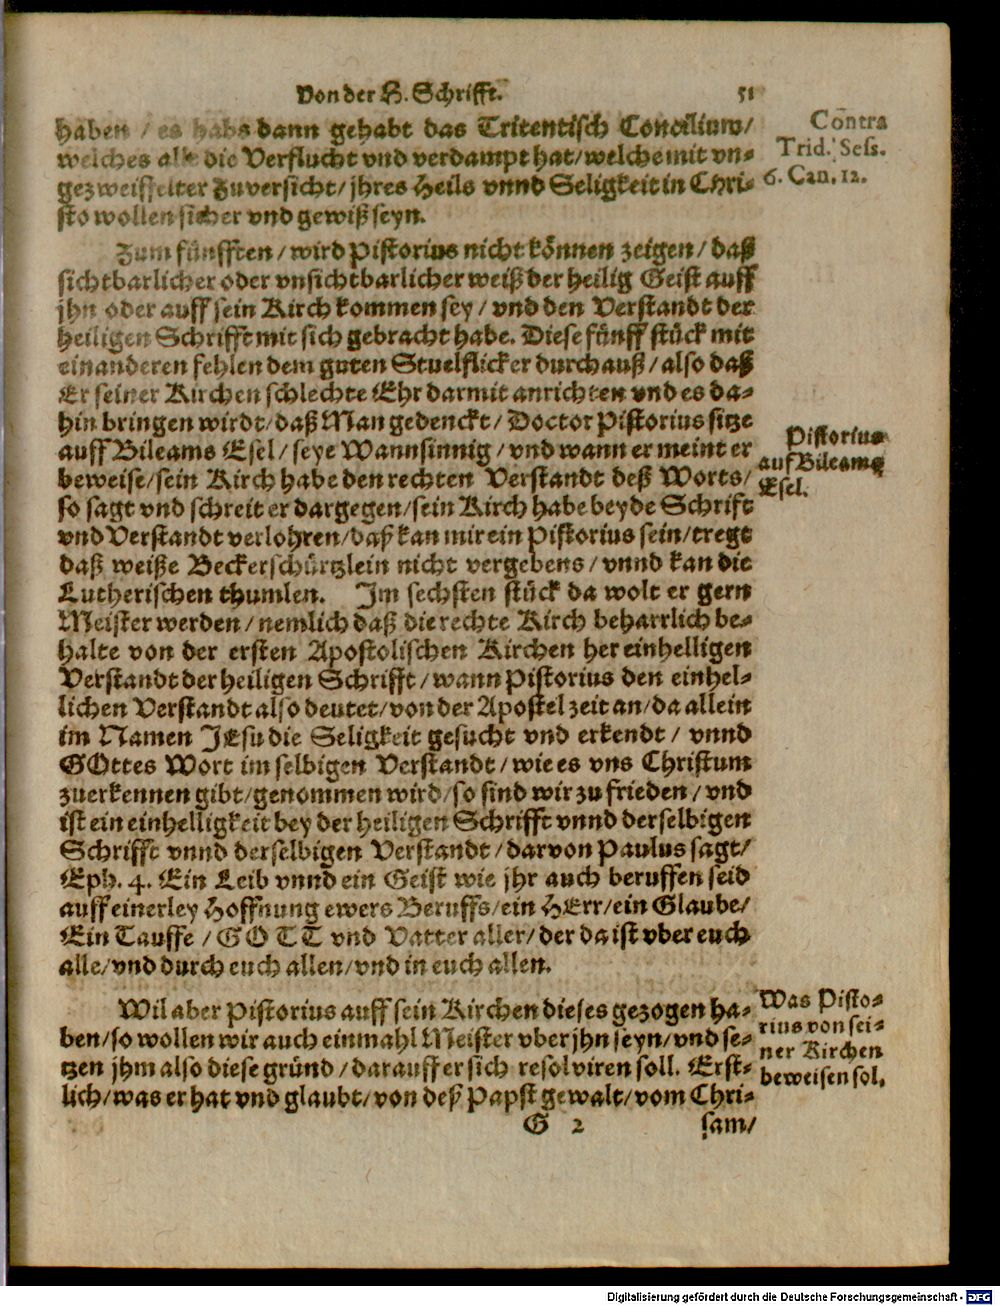 Von der H. Schrifft. 51
haben / es habs dann gehabt das Tritentisch Concilium/
welches alle die Verflucht vnd verdampt hat/welche mit vn-
gezweiffelter Zuversicht/jhres Heils vnnd Seligkeit in Chri-
sto wollen sicher vnd gewiß seyn.
Contra
Trid. Sess.
6. Can. 12.
Zum fünfften / wird Pistorius nicht können zeigen / daß
sichtbarlicher oder vnsichtbarlicher weiß der heilig Geist auff
jhn oder auff sein Kirch kommen sey / vnd den Verstandt der
heiligen Schrifft mit sich gebracht habe. Diese fünff stück mit
einanderen fehlen dem guten Stuelflicker durchauß / also daß
Er seiner Kirchen schlechte Ehr darmit anrichten vnd es da-
hin bringen wirdt/daß Man gedenckt/ Doctor Pistorius sitze
auff Bileams Esel / seye Wannsinnig / vnd wann er meint er
beweise/sein Kirch habe den rechten Verstandt deß Worts/
so sagt vnd schreit er dargegen/sein Kirch habe beyde Schrift
vnd Verstandt verlohren/daß kan mir ein Pistorius sein/tregt
daß weiße Beckerschürtzlein nicht vergebens / vnnd kan die
Lutherischen thumlen. Im sechsten stück da wolt er gern
Meister werden / nemlich daß die rechte Kirch beharrlich be-
halte von der ersten Apostolischen Kirchen her einhelligen
Verstandt der heiligen Schrifft / wann Pistorius den einhel-
lichen Verstandt also deutet/von der Apostel zeit an/da allein
im Namen JEsu die Seligkeit gesucht vnd erkendt / vnnd
GOttes Wort im selbigen Verstandt / wie es vns Christum
zuerkennen gibt/genommen wird/so sind wir zu frieden / vnd
ist ein einhelligkeit bey der heiligen Schrifft vnnd derselbigen
Schrifft vnnd derselbigen Verstandt / darvon Paulus sagt/
Eph. 4. Ein Leib vnnd ein Geist wie jhr auch beruffen seid
auff einerley Hoffnung ewers Beruffs/ein HErr/ein Glaube/
Ein Tauffe / GOTT vnd Vatter aller/ der da ist vber euch
alle/vnd durch euch allen/vnd in euch allen.
Pistorius
auf Bileams
Esel.
Wil aber Pistorius auff sein Kirchen dieses gezogen ha-
ben/so wollen wir auch einmahl Meister vber jhn seyn/vnd se-
tzen jhm also diese gründ / darauff er sich resolviren soll. Erst-
lich/was er hat vnd glaubt/von deß Papst gewalt/vom Chri-
Was Pisto-
rius von sei-
ner Kirchen
beweisen sol.
G 2 sam/
Digitalisierung gefördert durch die Deutsche Forschungsgemeinschaft - DFG